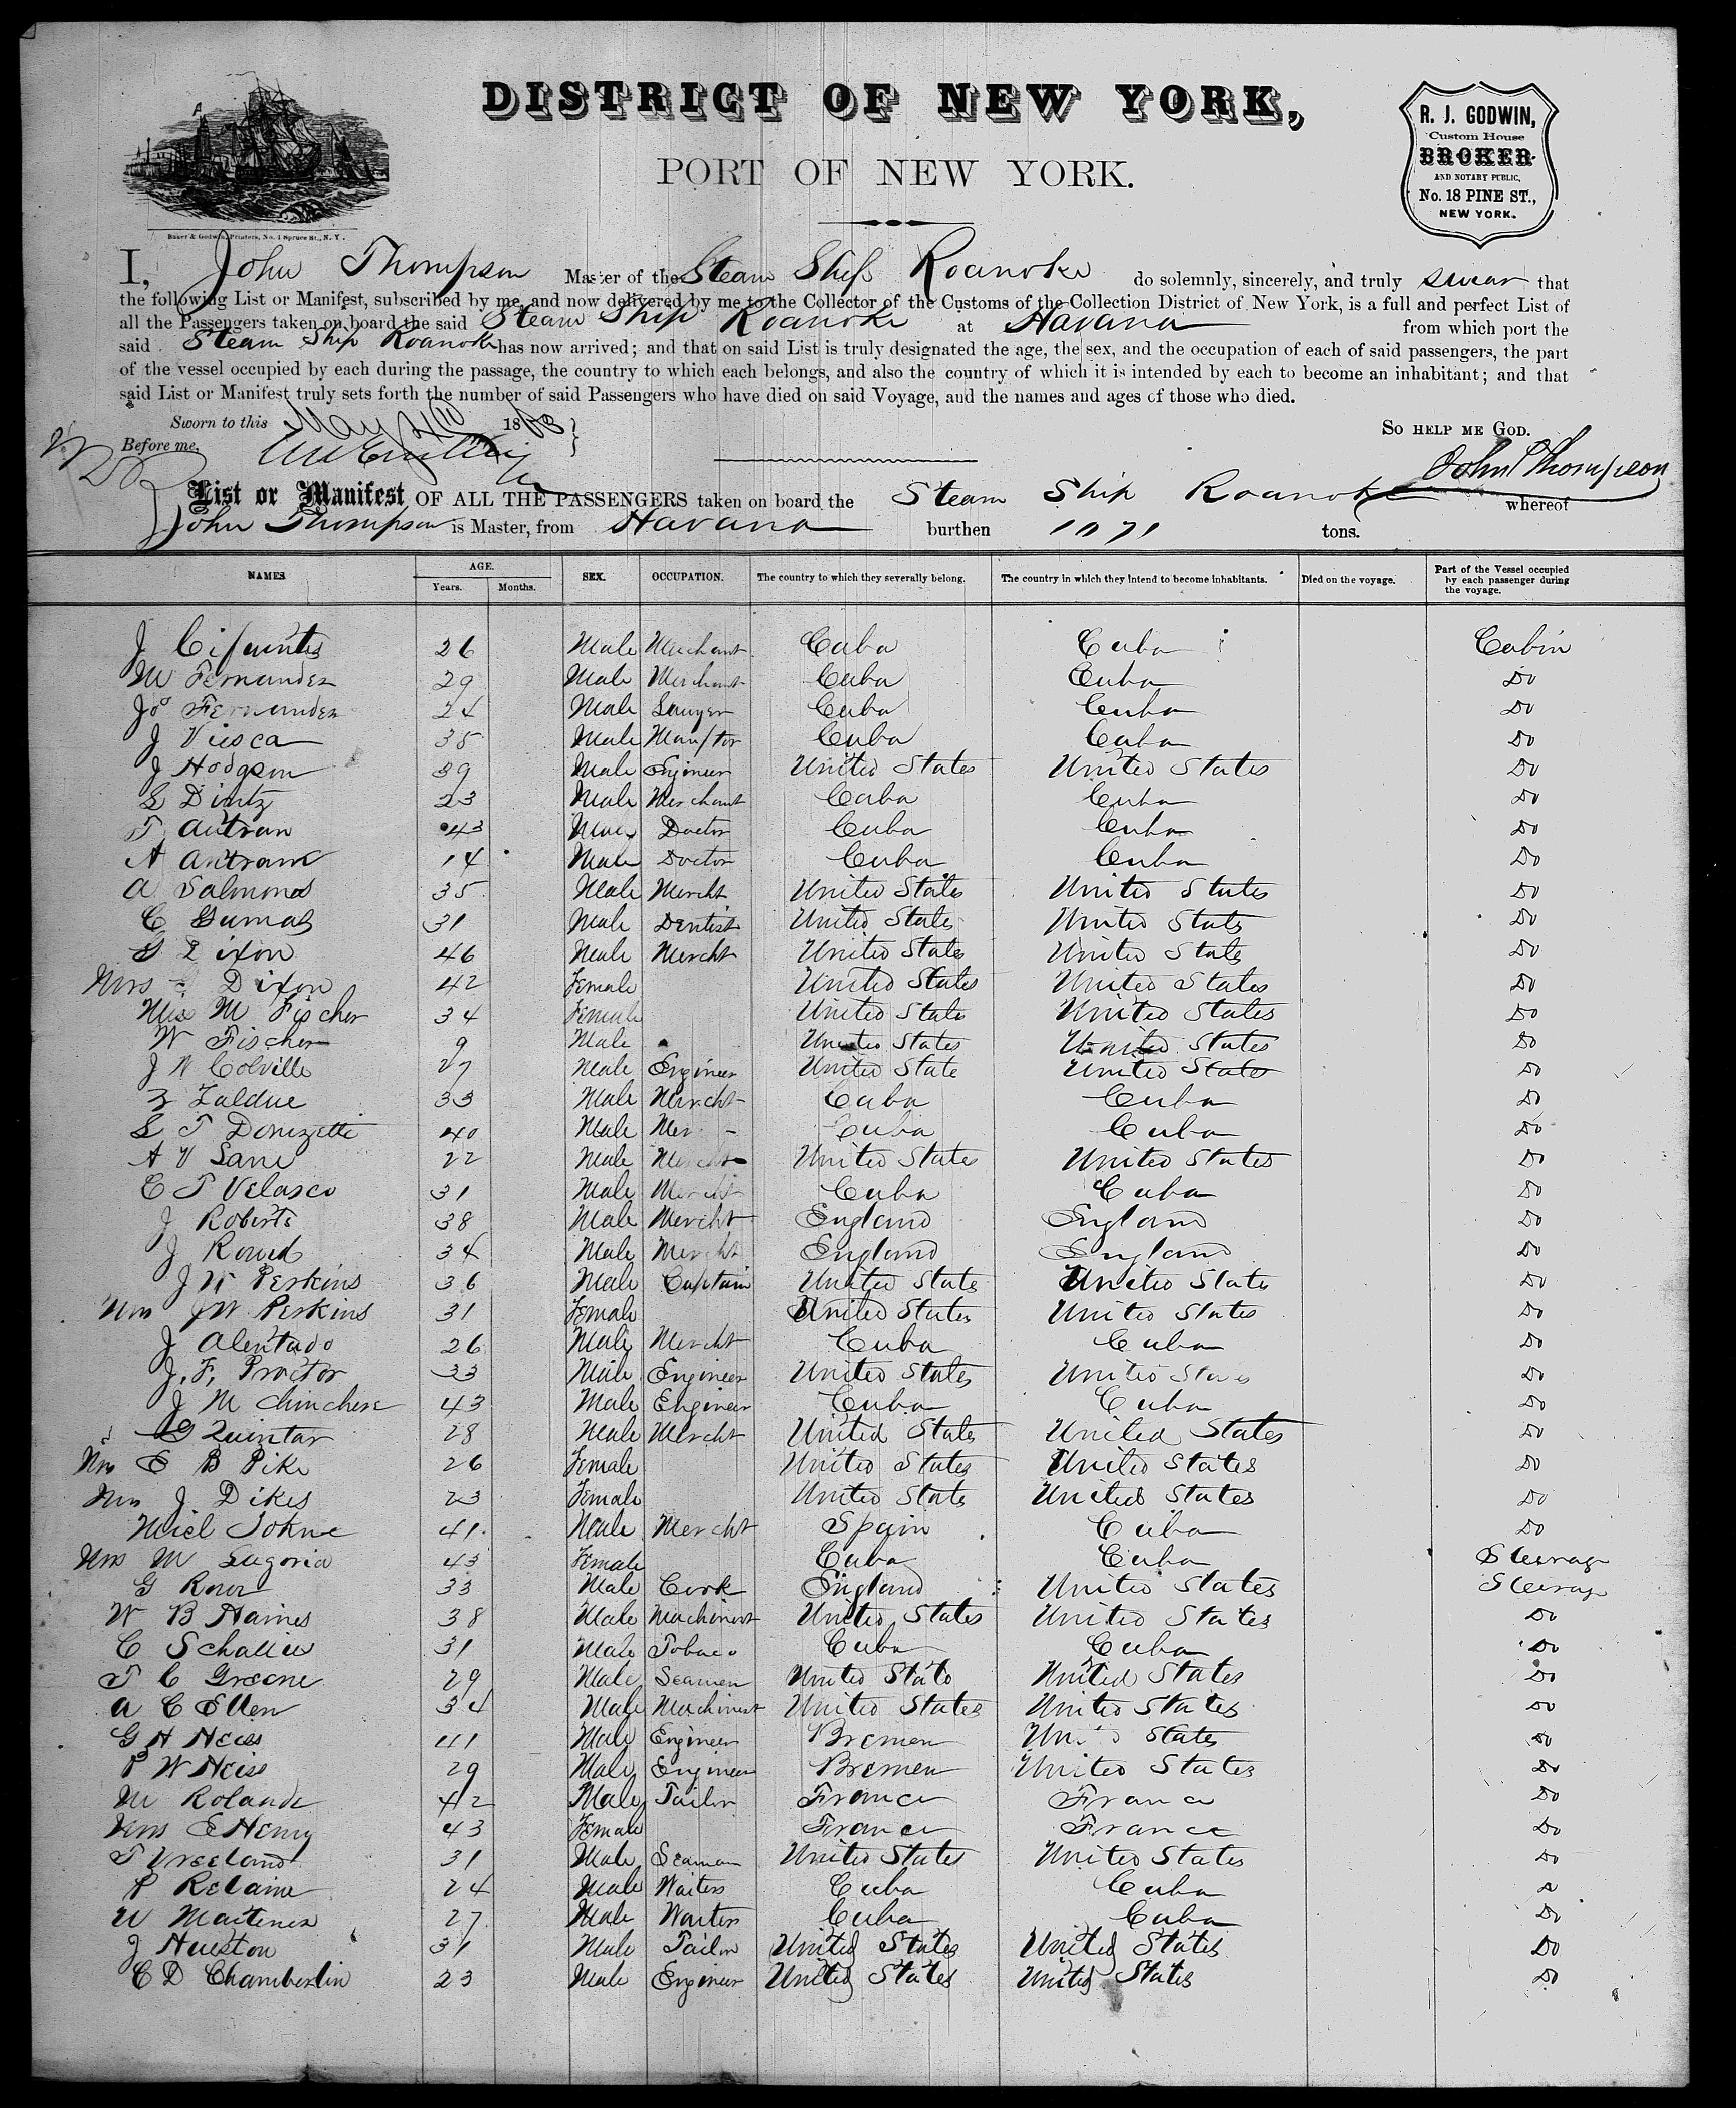 DISTRICT OF NEW YORK,
PORT OF NEW YORK.
R. J. GODWIN,
Custom House
BROKER
AND NOTARY PUBLIC,
No. 18 PINE ST.,
NEW YORK.
Baker & Godwin, Printers, No. 1 Spruce St., N. Y.
I, John Thompson Master of the Steam Ship Roanoke do solemnly, sincerely, and truly swear that
the following List or Manifest, subscribed by me, and now delivered by me to the Collector of the Customs of the Collection District of New York, is a full and perfect List of
all the Passengers taken on board the said Steam Ship Roanoke at Havana from which port the
said Steam Ship Roanoke has now arrived; and that on said List is truly designated the age, the sex, and the occupation of each of said passengers, the part
of the vessel occupied by each during the passage, the country to which each belongs, and also the country of which it is intended by each to become an inhabitant; and that
said List or Manifest truly sets forth the number of said Passengers who have died on said Voyage, and the names and ages of those who died.
Sworn to this May 1863
SO HELP ME GOD.
Before me,
John Thompson
List or Manifest OF ALL THE PASSENGERS taken on board the Steam Ship Roanoke whereof
John Thompson is Master, from Havana burthen 1071 tons.
NAMES AGE. Years. Months. SEX. OCCUPATION. The country to which they severally belong. The country in which they intend to become inhabitants. Died on the voyage. Part of the Vessel occupied by each passenger during the voyage.
J Cifuintes 26 Male Merchant Cuba Cuba Cabin
M Fernandez 29 Male Merchant Cuba Cuba Do
Jo Fernandez 24 Male Lawyer Cuba Cuba Do
J Viesca 35 Male Man/tor Cuba Cuba Do
J Hodgson 39 Male Engineer United States United States Do
S Dintz 23 Male Merchant Cuba Cuba Do
T Autran 43 Male Doctor Cuba Cuba Do
A Autran 14 Male Doctor Cuba Cuba Do
A Salmond 35 Male Mercht United States United States Do
C Dumas 31 Male Dentist United States United States Do
G Dixon 46 Male Mercht United States United States Do
Mrs Dixon 42 Female United States United States Do
Miss M Fischer 34 Female United State United States Do
W Fischer 9 Male United States United States Do
J W Colville 27 Male Engineer United State United States Do
Z Zaldue 33 Male Mercht Cuba Cuba Do
S T Donizette 40 Male Mer Cuba Cuba Do
A V Lane 22 Male Mercht United States United States Do
C T Velasco 31 Male Mercht Cuba Cuba Do
J Roberts 38 Male Mercht England England Do
J Rowed 34 Male Mercht England England Do
J W Perkins 36 Male Captain United States United State Do
Mrs J W Perkins 31 Female United States United States Do
J Alentado 26 Male Mercht Cuba Cuba Do
J. F. Proctor 33 Male Engineer United States United States Do
J M Chinchere 43 Male Engineer Cuba Cuba Do
G Quintar 28 Male Mercht United States United States Do
Mrs E B Pike 26 Female United States United States Do
Mrs J. Dikes 23 Female United State United States Do
Miel Tokne 41 Male Mercht Spain Cuba Do
Mrs M Sagoria 43 Female Cuba Cuba Steerage
G Rowe 33 Male Cook England United States Steerage
W B Haines 38 Male Machinist United States United States Do
C Schalier 31 Male Tobaco Cuba Cuba Do
T C Greene 29 Male Seamen United State United States Do
A C Ellen 34 Male Machinist United States United States Do
G H Heiss 41 Male Engineer Bremen United States Do
P W Heiss 29 Male Engineer Bremen United States Do
M Rolande 42 Male Tailor France France Do
Mrs E Henry 43 Female France France Do
T Vreeland 31 Male Seaman United States United States Do
P Relaine 24 Male Waiter Cuba Cuba Do
W Maitines 27 Male Waiter Cuba Cuba Do
J Hueston 31 Male Tailor United States United States Do
C D Chamberlin 23 Male Engineer United States United States Do